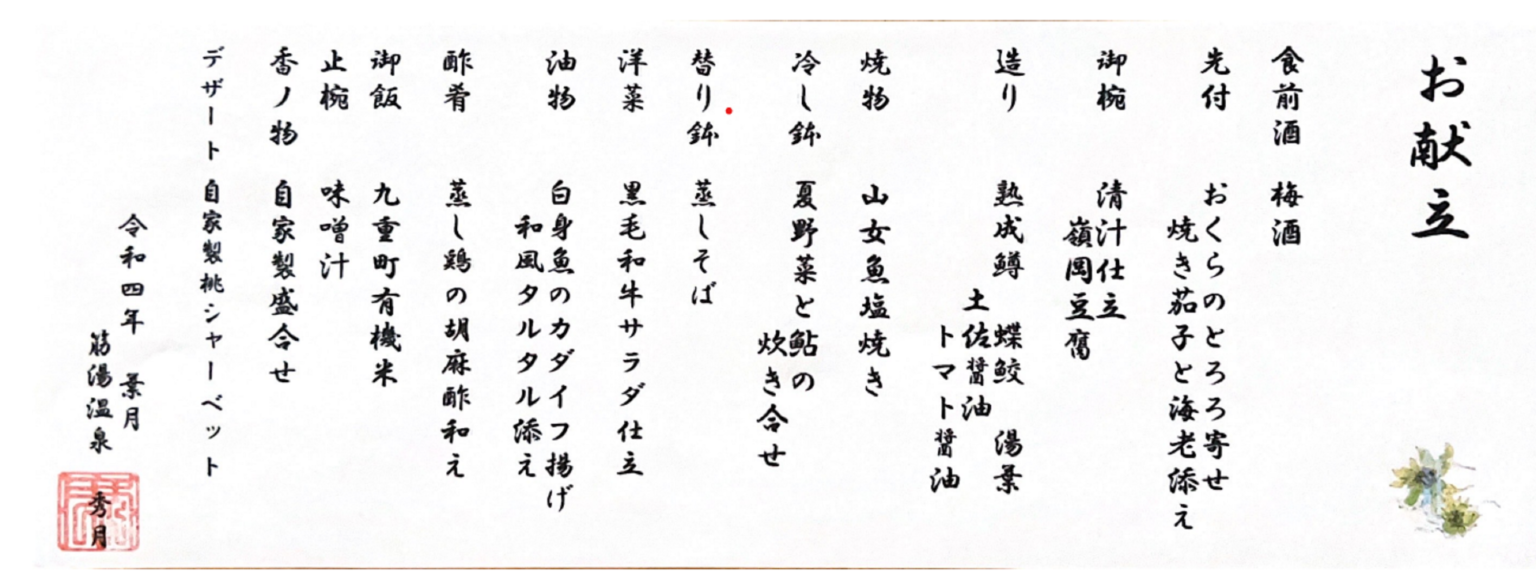 お献立
食前酒 梅酒
先付 おくらのとろろ寄せ
焼き茄子と海老添え
御椀 清汁仕立
嶺岡豆腐
造り 熟成鱒 蝶鮫 湯葉
土佐醤油
トマト醤油
焼物 山女魚塩焼き
冷し鉢 夏野菜と鮎の
炊き合せ
替り鉢 蒸しそば
洋菜 黒毛和牛サラダ仕立
油物 白身魚のカダイフ揚げ
和風タルタル添え
酢肴 蒸し鶏の胡麻酢和え
御飯 九重町有機米
止椀 味噌汁
香ノ物 自家製盛合せ
デザート 自家製桃シャーベット
令和四年 葉月
筋湯温泉
秀月